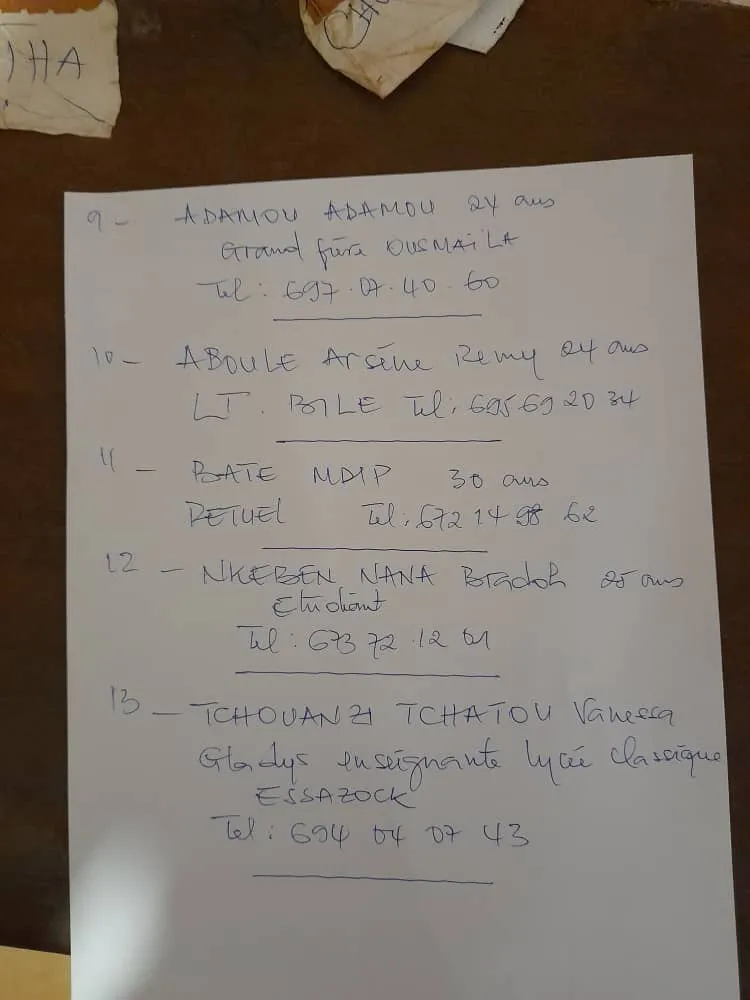 HA
9 - ADAMOU ADAMOU 24 ans
Grand frère OUSMAILA
Tel : 697.07.40.60
10 - ABOULE Arsène Remy 24 ans
LT. BILE Tel: 695 69 20 34
11 - BATE NDIP 30 ans
BETUEL Tel: 672 14 98 62
12 - NKEBEN NANA Bradoh 25 ans
Etudiant
Tel : 673 72.12 01
13 - TCHOUANZI TCHATOU Vanessa
Gladys enseignante lycée classique
ESSAZOCK
Tel : 694 04 07 43